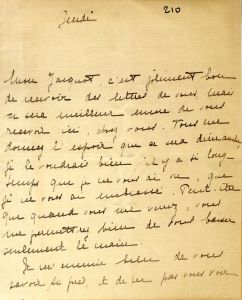 210
Jeudi
Mon Jacquot, c'est joliment bon
de recevoir des lettres de vous, mais
ce sera meilleur encore de vous
recevoir ici, chez vous. Tout me
donne l'espoir que ce sera dimanche,
je le voudrais bien. il y a si long
temps que je ne vous ai vu, que
je ne vous ai embrassé. Peut-être
que quand vous me verrez, vous
me permettrez bien de vous baiser
seulement la main.
Je m'ennuie bien de vous
savoir si près, et de ne pas vous voir